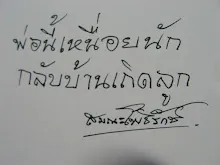 พ่อนี้เหนื่อยนัก
กลับบ้านเถิดลูก
สมณะโพธิรักษ์